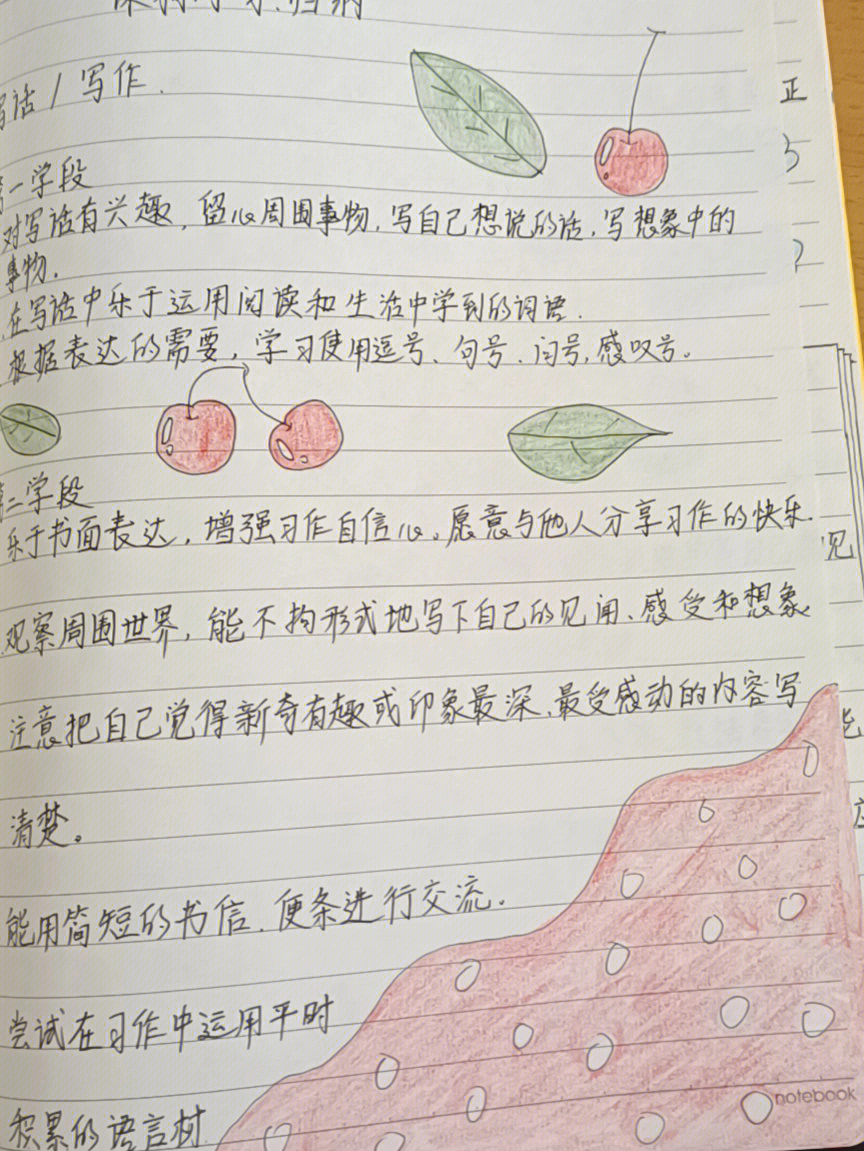 写话/写作.
第一学段
对写话有兴趣,留心周围事物,写自己想说的话,写想象中的
事物.
在写话中乐于运用阅读和生活中学到的词语.
根据表达的需要,学习使用逗号、句号、问号,感叹号。
第二学段
乐于书面表达,增强习作自信心。愿意与他人分享习作的快乐.
观察周围世界,能不拘形式地写下自己的见闻、感受和想象
注意把自己觉得新奇有趣或印象最深、最受感动的内容写
清楚。
能用简短的书信、便条进行交流.
尝试在习作中运用平时
积累的语言材
notebook
正
见